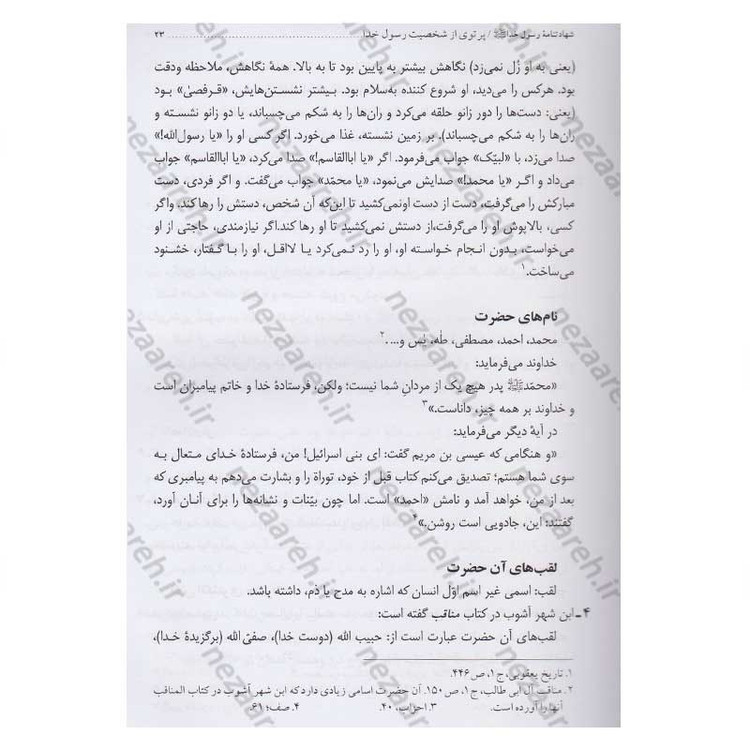 شهادتنامهٔ رسول خداﷺ / پرتوی از شخصیت رسول خدا ........ ۲۳
(یعنی به او زُل نمی‌زد) نگاهش بیشتر به پایین بود تا به بالا. همهٔ نگاهش، ملاحظه ودقت
بود. هرکس را می‌دید، او شروع کننده به‌سلام بود. بیشتر نشستن‌هایش، «قرفصیٰ» بود
(یعنی: دست‌ها را دور زانو حلقه می‌کرد و ران‌ها را به شکم می‌چسباند، یا دو زانو نشسته و
ران‌ها را به شکم می‌چسباند). بر زمین نشسته، غذا می‌خورد. اگر کسی او را «یا رسول‌الله!»
صدا می‌زد، با «لبیّک» جواب می‌فرمود. اگر «یا اباالقاسم!» صدا می‌کرد، «یا اباالقاسم» جواب
می‌داد و اگر «یا محمد!» صدایش می‌نمود، «یا محمّد» جواب می‌گفت. و اگر فردی، دست
مبارکش را می‌گرفت، دست از دست اونمی‌کشید تا این‌که آن شخص، دستش را رها کند. واگر
کسی، بالاپوش او را می‌گرفت،از دستش نمی‌کشید تا او رها کند.اگر نیازمندی، حاجتی از او
می‌خواست، بدون انجام خواسته او، او را رد نمی‌کرد یا لااقل، او را با گفتار، خشنود
می‌ساخت.۱
نام‌های حضرت
محمد، احمد، مصطفی، طٰه، یٰس و.... .۲
خداوند می‌فرماید:
«محمّدﷺ پدر هیچ یک از مردانِ شما نیست؛ ولکن، فرستادهٔ خدا و خاتم پیامبران است
و خداوند بر همه چیز، داناست.»۳
در آیهٔ دیگر می‌فرماید:
«و هنگامی که عیسی بن مریم گفت: ای بنی اسرائیل! من، فرستادهٔ خدای متعال به
سوی شما هستم؛ تصدیق می‌کنم کتاب قبل از خود، توراة را و بشارت می‌دهم به پیامبری که
بعد از من، خواهد آمد و نامش «احمد» است. اما چون بیّنات و نشانه‌ها را برای آنان آورد،
گفتند: این، جادویی است روشن.»۴
لقب‌های آن حضرت
لقب: اسمی غیر اسم اوّل انسان که اشاره به مدح یا ذم، داشته باشد.
۴ـ ابن شهر آشوب در کتاب مناقب گفته است:
لقب‌های آن حضرت عبارت است از: حبیب الله (دوست خدا)، صفیّ الله (برگزیدهٔ خدا)،
۱. تاریخ یعقوبی، ج۱، ص ۴۴۶.
۲. مناقب آل ابی طالب، ج۱، ص ۱۵۰. آن حضرت اسامی زیادی دارد که ابن شهر آشوب در کتاب المناقب
آنها را آورده است. ۳. احزاب، ۴۰. ۴. صف؛ ۶۱.
nezaareh.ir